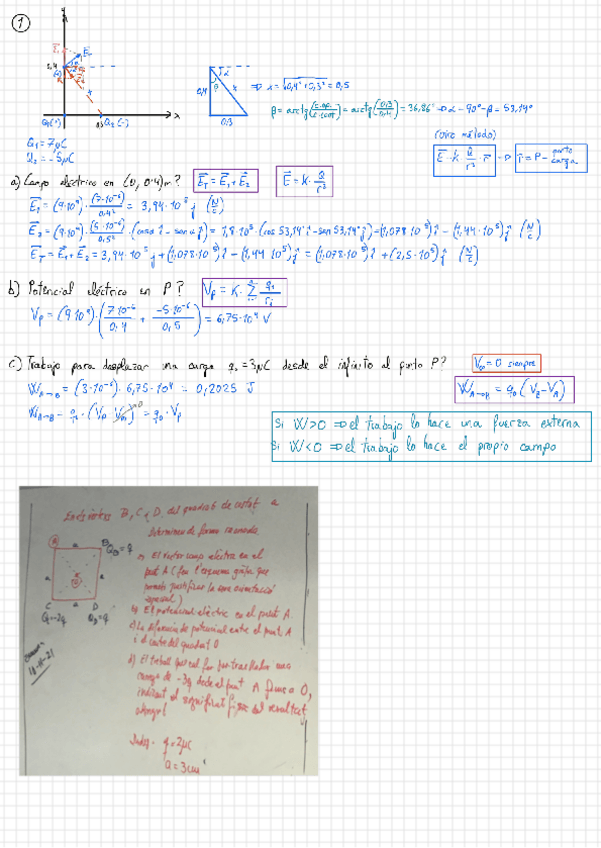 1
y
0,4
x
0,3
Q₁(+)
Q₂(-)
Q₁ = 7μC
Q₂ = -5μC
0,4
0,3
α
x
⇒ x = √(0,4² + 0,3²) = 0,5
β = arctg(c.op./c.cont.) = arctg(0,3/0,4) = 36,86° ⇒ α = 90° - β = 53,14°
(otro método)
E = K · Q/r³ · r ⇒ r = P - carga
a) Campo eléctrico en (0, 0'4)m?
E_T = E₁ + E₂
E = K · Q/r²
E₁ = (9·10⁹) · (7·10⁻⁶)/0,4² = 3,94·10⁵ j (N/C)
E₂ = (9·10⁹) · (5·10⁻⁶)/0,5² · (cosα i - senα j) = 1,8·10⁵ · (cos 53,14° i - sen 53,14° j) = (1,078·10⁵) i - (1,44·10⁵) j (N/C)
E_T = E₁ + E₂ = 3,94·10⁵ j + (1,078·10⁵) i - (1,44·10⁵) j = (1,078·10⁵) i + (2,5·10⁵) j (N/C)
b) Potencial eléctrico en P?
V_P = K · Σ q_i/r_i
V_P = (9·10⁹) · (7·10⁻⁶/0,4 + -5·10⁻⁶/0,5) = 6,75·10⁴ V
c) Trabajo para desplazar una carga q₀ = 3μC desde el infinito al punto P?
V∞ = 0 siempre
W_A→B = (3·10⁻⁶) · 6,75·10⁴ = 0,2025 J
W_A→B = q₀ · (V_B - V_A)
W_A→B = q₀ · (V_P - V∞) = q₀ · V_P
Si W>0 ⇒ el trabajo lo hace una fuerza externa
Si W<0 ⇒ el trabajo lo hace el propio campo
B, C i D del quadrat de costat a
Determineu de forma raonada
A
a
B
Q_B = q
a) El vector camp elèctric en el
punt A (feu l'esquema gràfic que
permeti justificar la seva orientació
espacial)
C
D
Q_C = -2q
Q_D = q
b) El potencial elèctric en el punt A.
c) La diferència de potencial entre el punt A
i el centre del quadrat O
d) El treball que cal fer per traslladar una
càrrega de -3q des del punt A fins a O,
indicant el significat físic del resultat
obtingut
18-11-21
Dades: q = 2μC
a = 3 cm